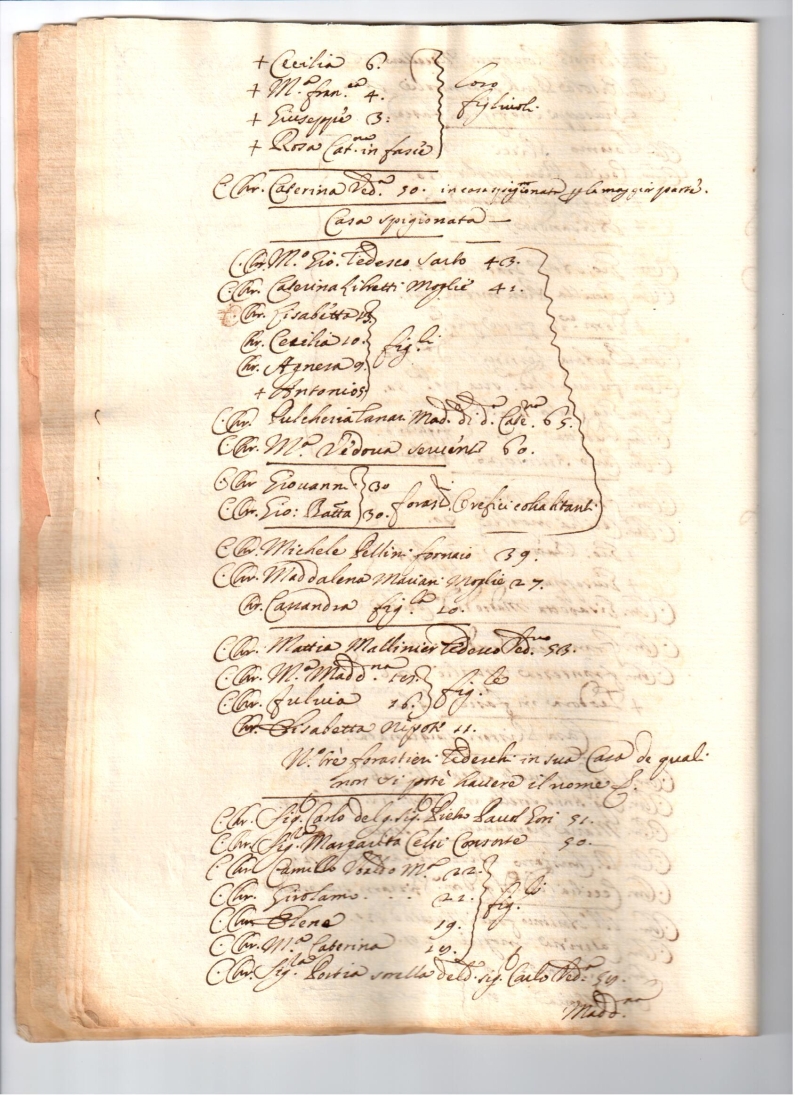 + Cecilia 6.
+ M.ª Fran.ca 4. Loro
+ Giuseppe 3: figliuoli
+ Rosa Cat.na in fascie
C. Chr. Caterina Ved.ª 50. in casa spigionata la maggior parte.
Casa spigionata —
C. Chr. M.º Gio. Tedesco Sarto 43.
C. Chr. Caterina Moglie 41.
C. Chr. Lisabetta 13
Chr. Cecilia 10. fig.li
Chr. Agnesa 9.
+ Antonio 5
C. Chr. Pulcheria Mad. di d.ª Cate.na 65.
C. Chr. M.ª Vedova servente 60.
C. Chr. Giovanni 30
C. Chr. Gio: Batta 30. forast.i Orefici cohabitanti
C. Chr. Michele Pellini fornaio 39.
C. Chr. Maddalena Mariani Moglie 27.
Chr. Cassandra fig.la 10.
C. Chr. Mattia Tedesco Ved.vo 53.
C. Chr. M.ª Madd.na fig.le
C. Chr. Fulvia 16.
Chr. Elisabetta Nipote 11.
N.º trè forastieri Tedeschi in sua Casa de quali
non si potè havere il nome
C. Chr. Sig. Carlo del q. sig. Pietro Paul 51.
C. Chr. Sig.ra Margarita Celsi Consorte 50.
C. Chr. Camillo M.ª 22.
C. Chr. Girolamo . . . 21. fig.li
C. Chr. Elena 19.
C. Chr. M.ª Caterina
C. Chr. Sig.ra Portia sorella del d.º sig. Carlo Ved.ª
Madd.na